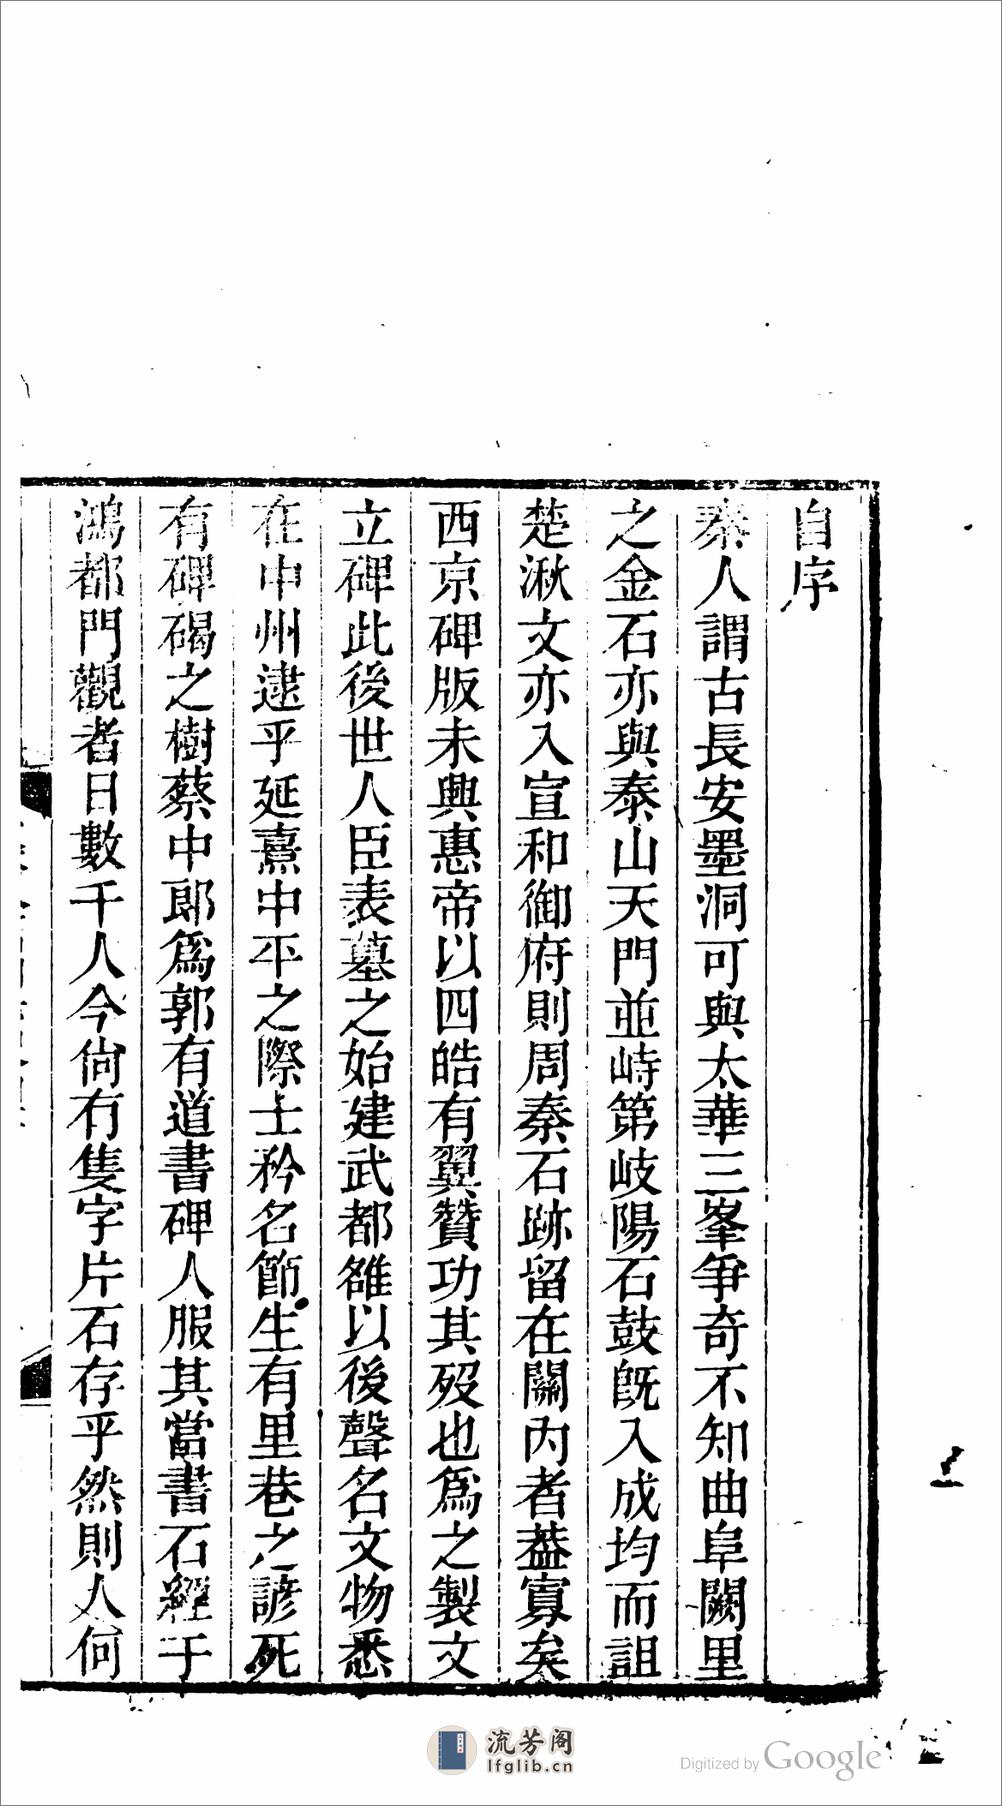 自序
秦人謂古長安墨洞可與太華三峯爭奇不知曲阜闕里
之金石亦與泰山天門並峙第岐陽石鼓旣入成均而詛
楚湫文亦入宣和御府則周秦石跡留在關內者葢寡矣
西京碑版未興惠帝以四皓有翼贊功其歿也爲之製文
立碑此後世人臣表墓之始建武都雒以後聲名文物悉
在中州逮乎延熹中平之際士矜名節生有里巷之諺死
有碑碣之樹蔡中郎爲郭有道書碑人服其當書石經于
鴻都門觀者日數千人今尙有隻字片石存乎然則人何
流芳阁
lfglib.cn
Digitized by Google